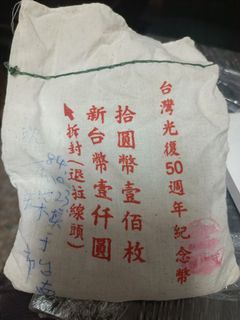 台灣光復50週年紀念幣
拾圓幣壹佰枚
新台幣壹仟圓
拆封(退拉線頭)